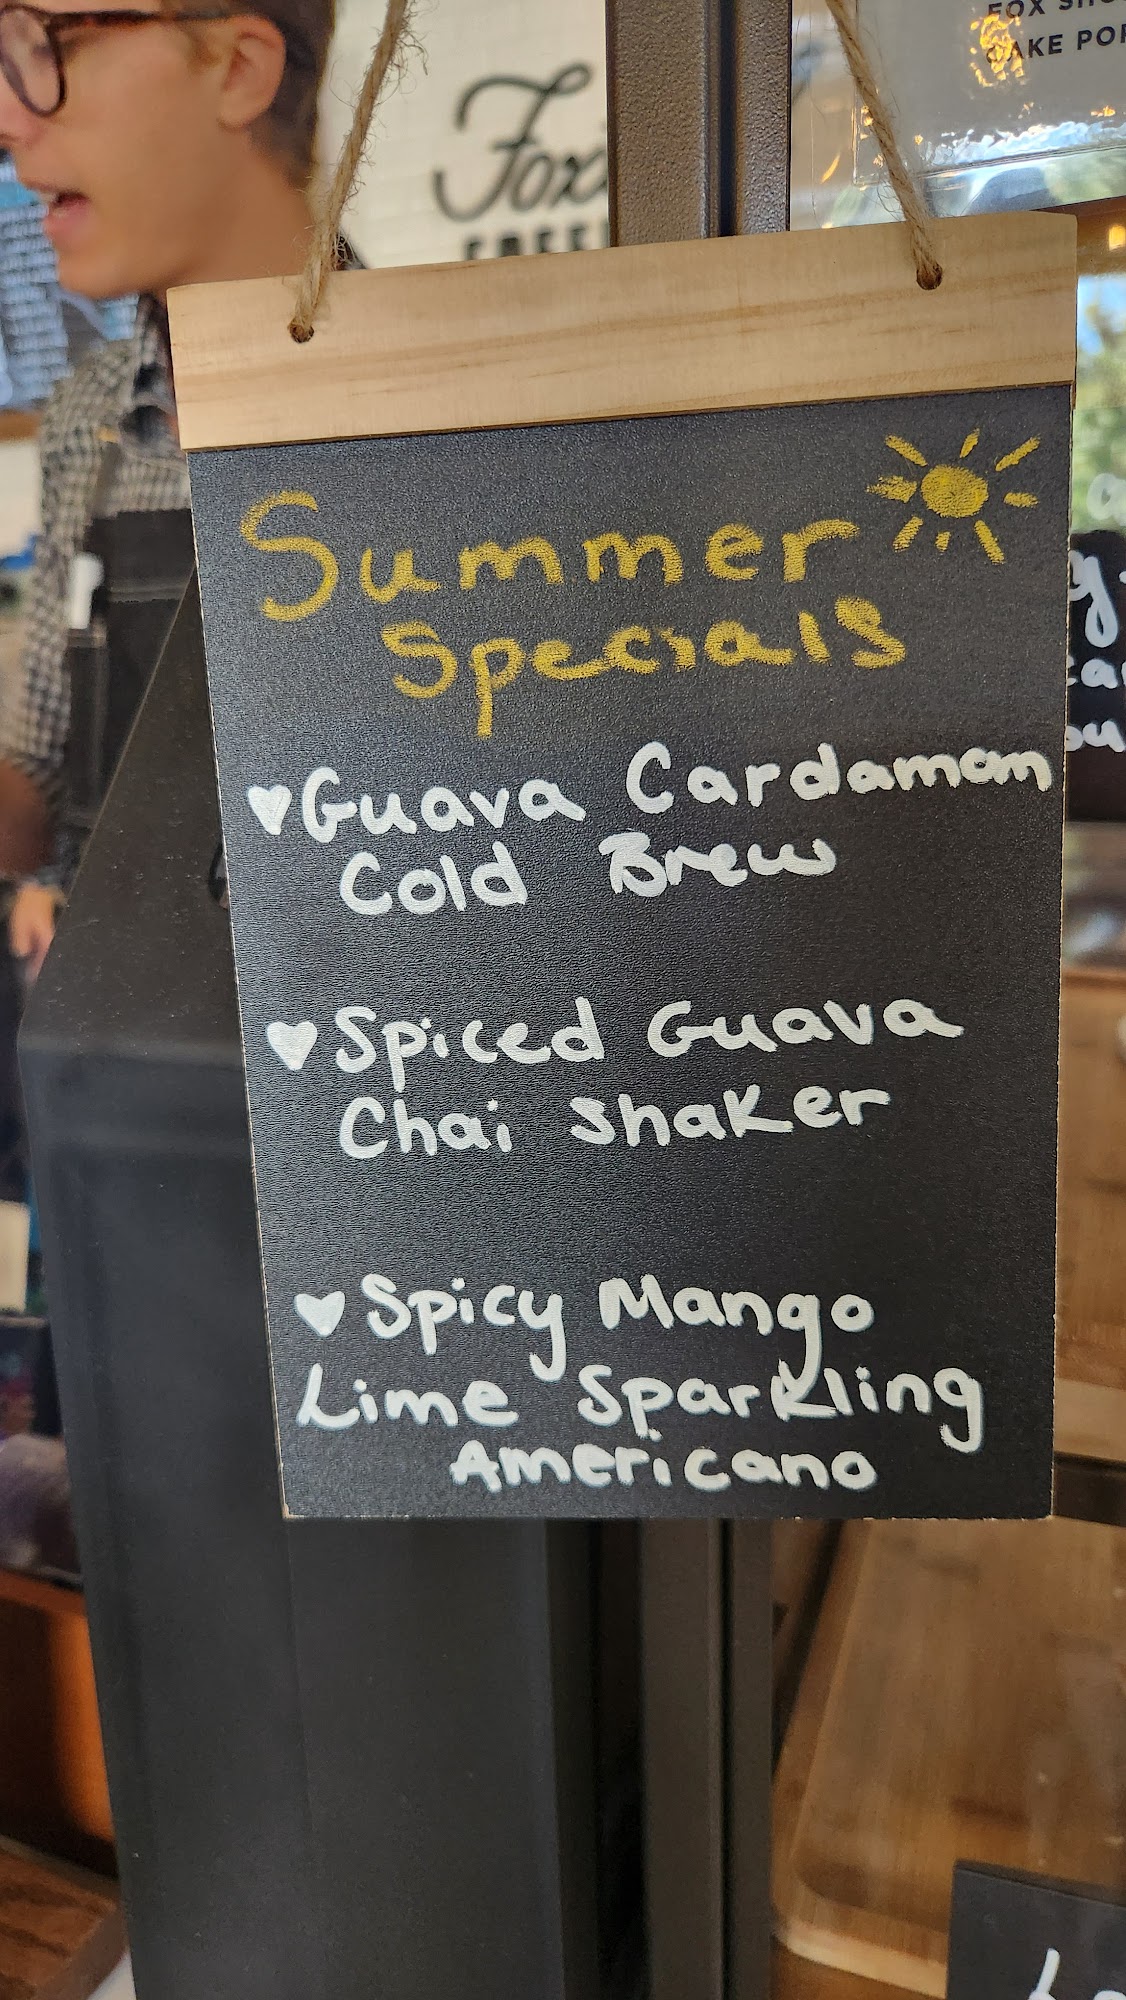 FOX
CAKE
Summer
Specials
♥Guava Cardamom
Cold Brew
♥Spiced Guava
Chai Shaker
♥Spicy Mango
Lime Sparkling
Americano